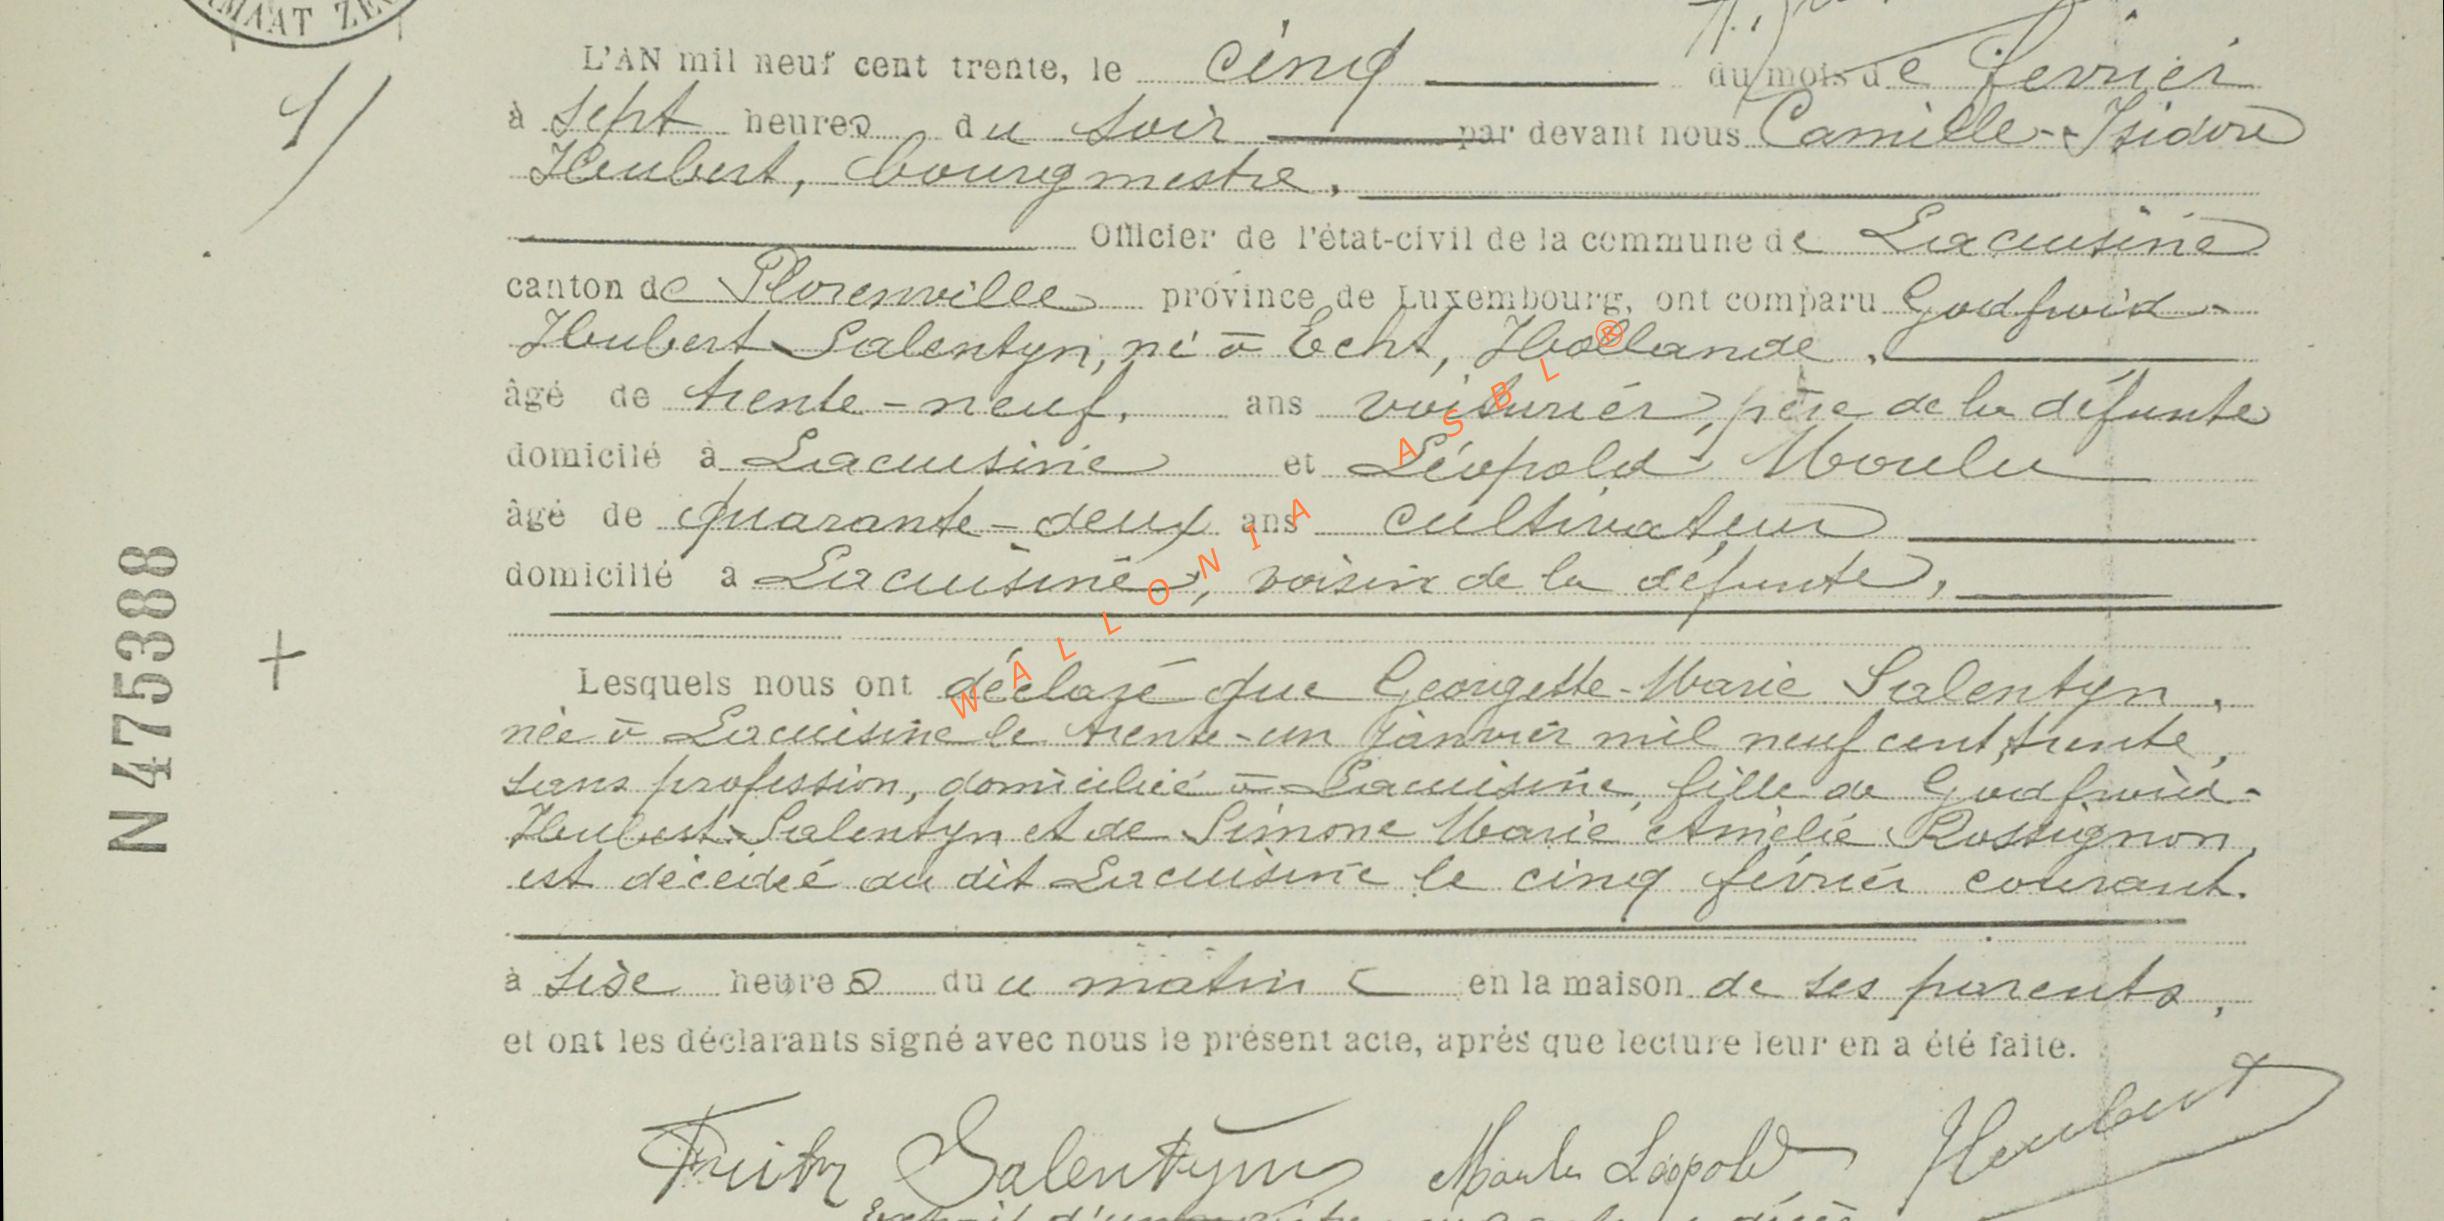 MAAT ZE
L'AN mil neuf cent trente, le cinq du mois de février
à sept heures du soir par devant nous Camille-Isidore
Heubert, bourgmestre,
Officier de l'état-civil de la commune de Lacuisine
canton de Florenville province de Luxembourg, ont comparu Godfroid-
Hubert Salentyn, né à Echt, Hollande,
âgé de trente-neuf, ans voiturier, père de la défunte
domicilé à Lacuisine et Léopold Moulu
âgé de quarante-deux ans cultivateur
domicilié à Lacuisine, voisin de la défunte,
Lesquels nous ont déclaré que Georgette-Marie Salentyn,
née à Lacuisine le trente-un janvier mil neuf cent trente,
sans profession, domiciliée à Lacuisine, fille de Godfroid-
Hubert Salentyn et de Simone Marie Amélie Rossignon,
est décédée au dit Lacuisine le cinq février courant.
à seize heures du matin en la maison de ses parents,
et ont les déclarants signé avec nous le présent acte, après que lecture leur en a été faite.
Salentyn Moulu Léopold Heubert
N 475388
WALLONIA ASBL ®